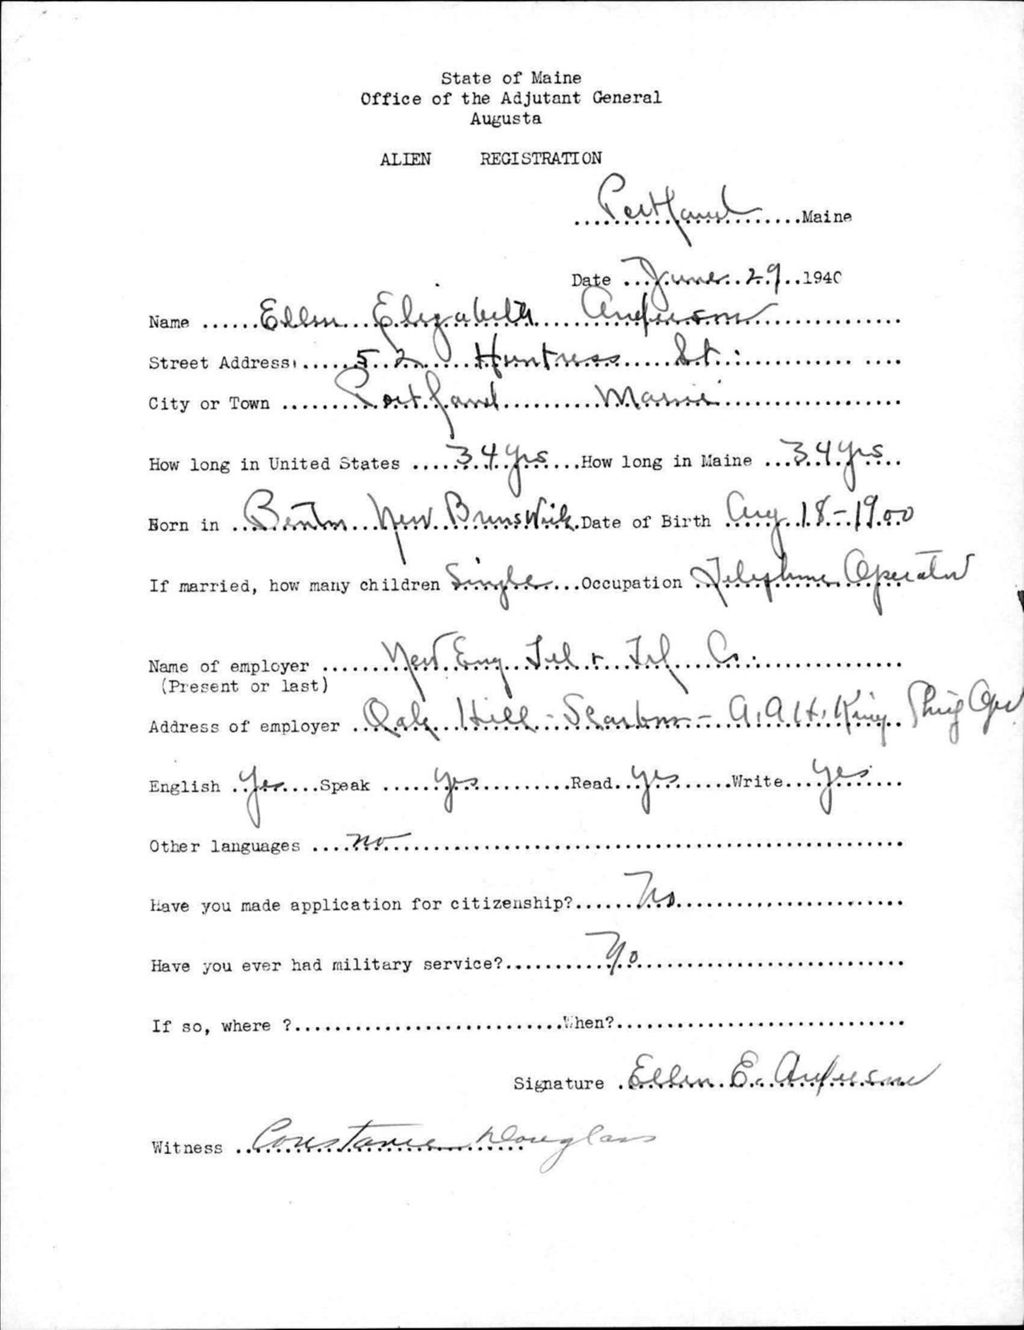 State of Maine
Office of the Adjutant General
Augusta
ALIEN REGISTRATION
Portland Maine
Date June 29 1940
Name Ellen Elizabeth Anderson
Street Address: 52 Huntress St.
City or Town Portland Maine
How long in United States 34 yrs How long in Maine 34 yrs
Born in Benton New Brunswick Date of Birth Aug 18-1900
If married, how many children Single Occupation Telephone Operator
Name of employer New Eng Tel & Tel Co.
(Present or last)
Address of employer Oak Hill - Scarboro - A.A.H. King Chief Opr
English Yes Speak yes Read yes Write yes
Other languages no
Have you made application for citizenship? No
Have you ever had military service? No
If so, where ? When?
Signature Ellen E. Anderson
Witness Constance Douglass